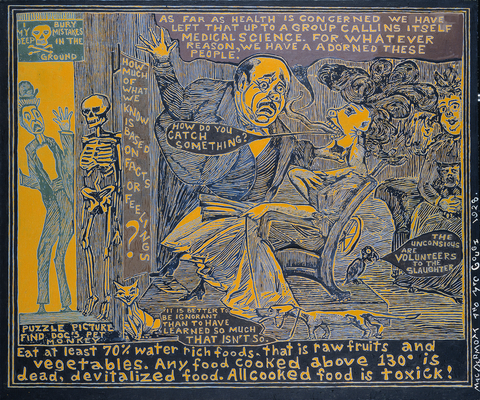 BURY
MY MISTAKES
DEEP IN THE
GROUND
AS FAR AS HEALTH IS CONCERNED WE HAVE
LEFT THAT UP TO A GROUP CALLING ITSELF
MEDICAL SCIENCE. FOR WHATEVER
REASON, WE HAVE A ADORNED THESE
PEOPLE.
HOW
MUCH
OF WHAT
WE
KNOW
IS BASED
ON FACTS
OR FEELINGS
?
HOW DO YOU
CATCH
SOMETHING?
THE
UNCONSIOUS
ARE
VOLUNTEERS
TO THE
SLAUGHTER
PUZZLE PICTURE
FIND DOC'S PET
MONKEY
IT IS BETTER TO
BE IGNORANT
THAN TO HAVE
LEARNED SO MUCH
THAT ISN'T SO.
Eat at least 70% water rich foods. that is raw fruits and
vegetables. Any food cooked above 130° is
dead, devitalized food. All cooked food is toxick!